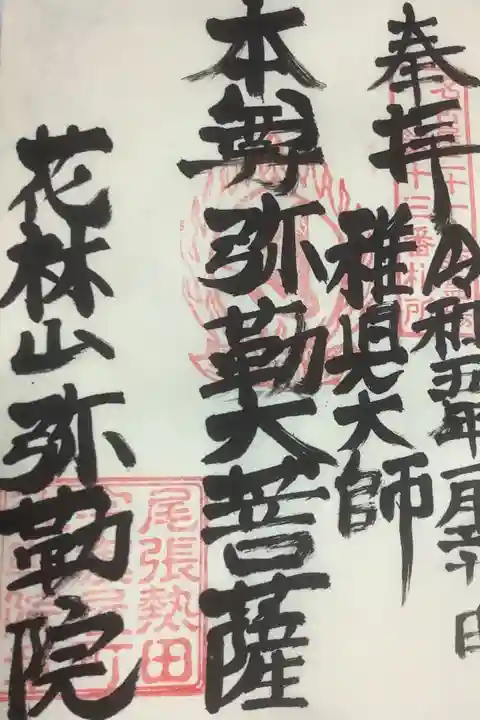 奉拝
令和五年一月吉日
稚児大師
本尊弥勒大菩薩
花林山弥勒院
十三番札所
尾張熱田